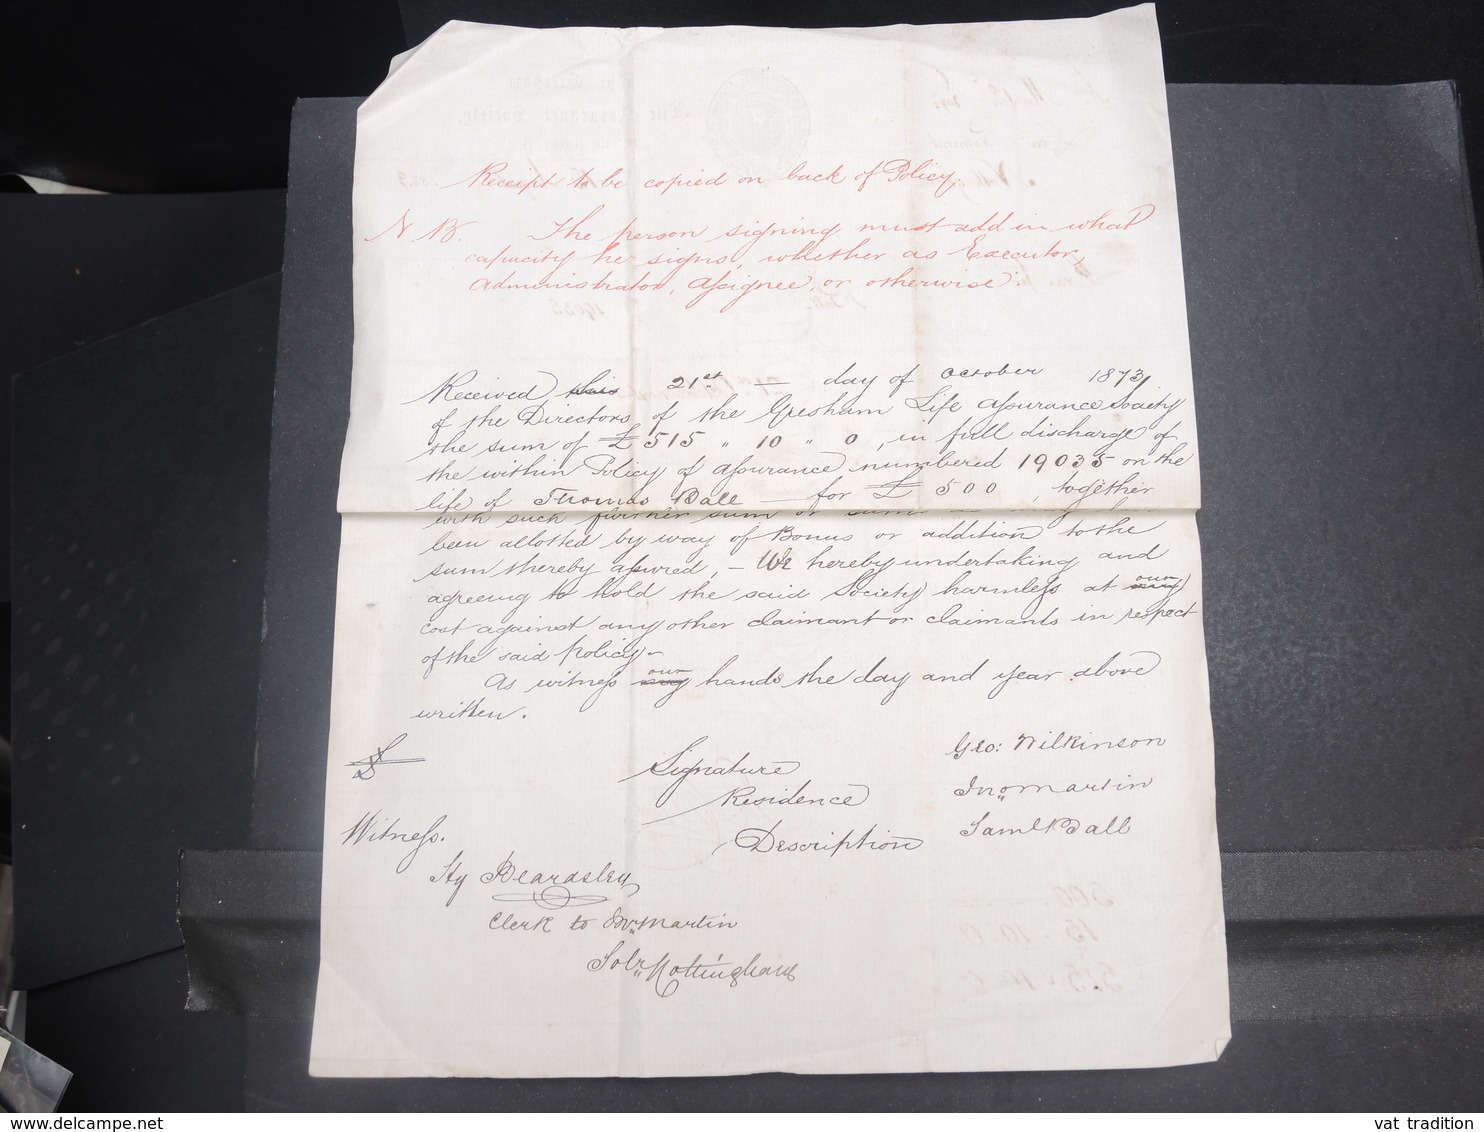 Receipt to be copied on back of Policy.
N.B. The person signing must add in what
capacity he signs, whether as Executor,
Administrator, Assignee, or otherwise.
Received this 21st — day of October 1873,
of the Directors of the Gresham Life Assurance Society
the sum of £515 " 10 " 0, in full discharge of
the within Policy of Assurance numbered 19035 on the
life of Thomas Ball — for £500, together
with such further sum or
been allotted by way of Bonus or addition to the
sum thereby assured, — We hereby undertaking and
agreeing to hold the said Society harmless at our
cost against any other claimant or claimants in respect
of the said policy —
As witness our hands the day and year above
written.
£
Signature Geo: Wilkinson
Residence Jno Martin
Description Saml Ball
Witness.
Hy Beardsley
Clerk to Mr Martin
Solr Nottingham
500
15 10 0
515 10 0
vat tradition